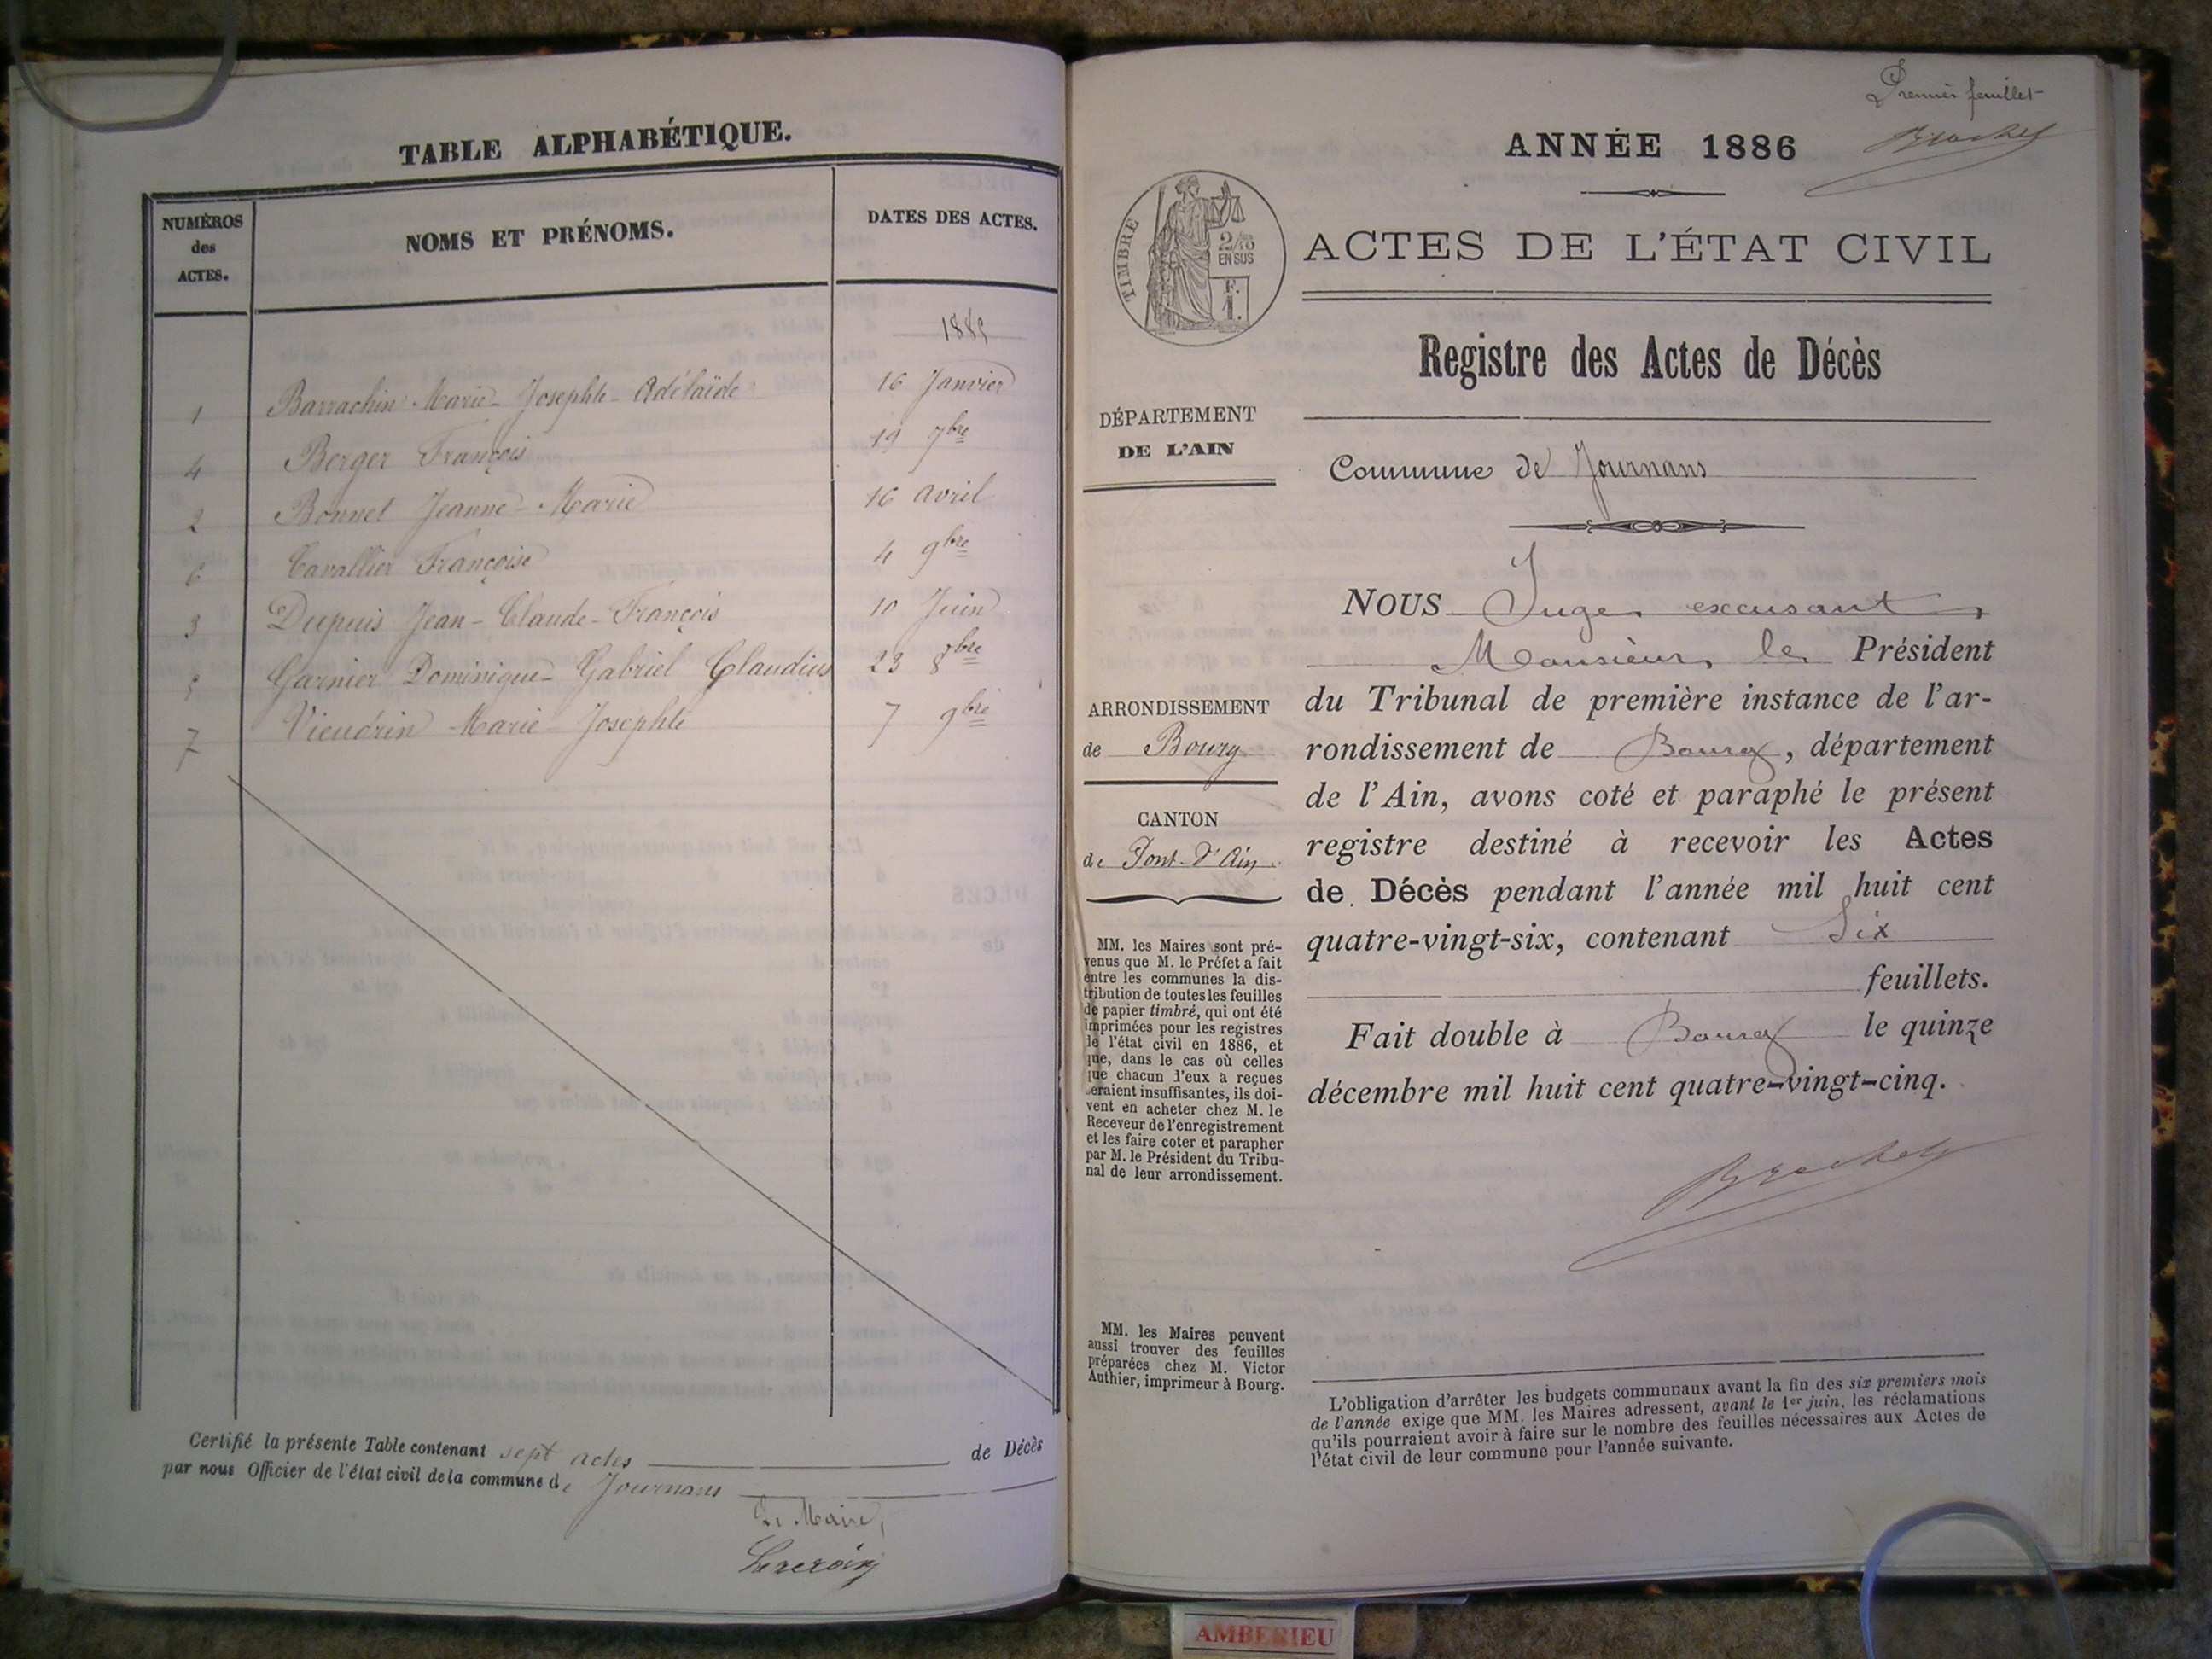 TABLE ALPHABÉTIQUE.
NUMÉROS
des
ACTES.
NOMS ET PRÉNOMS.
DATES DES ACTES.
1885
1 Barrachin Marie-Josephte-Adélaïde 16 Janvier
4 Berger François 19 7bre
2 Bonnet Jeanne-Marie 16 avril
6 Cavallier Françoise 4 9bre
3 Dupuis Jean-Claude-François 10 Juin
5 Garnier Dominique-Gabriel Claudius 23 8bre
7 Vieudrin Marie-Josephte 7 9bre
Certifié la présente Table contenant sept actes de Décès
par nous Officier de l'état civil de la commune de Journans
Le Maire,
Premier feuillet
ANNÉE 1886
TIMBRE
2/10
EN SUS
F.
1.
ACTES DE L'ÉTAT CIVIL
Registre des Actes de Décès
DÉPARTEMENT
DE L'AIN
Commune de Journans
NOUS Juge excusant
Monsieur le Président
du Tribunal de première instance de l'ar-
rondissement de Bourg, département
de l'Ain, avons coté et paraphé le présent
registre destiné à recevoir les Actes
de Décès pendant l'année mil huit cent
quatre-vingt-six, contenant Six
feuillets.
Fait double à Bourg le quinze
décembre mil huit cent quatre-vingt-cinq.
ARRONDISSEMENT
de Bourg
CANTON
de Pont-d'Ain
MM. les Maires sont pré-
venus que M. le Préfet a fait
entre les communes la dis-
tribution de toutes les feuilles
de papier timbré, qui ont été
imprimées pour les registres
de l'état civil en 1886, et
que, dans le cas où celles
que chacun d'eux a reçues
seraient insuffisantes, ils doi-
vent en acheter chez M. le
Receveur de l'enregistrement
et les faire coter et parapher
par M. le Président du Tribu-
nal de leur arrondissement.
MM. les Maires peuvent
aussi trouver des feuilles
préparées chez M. Victor
Authier, imprimeur à Bourg.
L'obligation d'arrêter les budgets communaux avant la fin des six premiers mois
de l'année exige que MM. les Maires adressent, avant le 1er juin, les réclamations
qu'ils pourraient avoir à faire sur le nombre des feuilles nécessaires aux Actes de
l'état civil de leur commune pour l'année suivante.
AMBERIEU